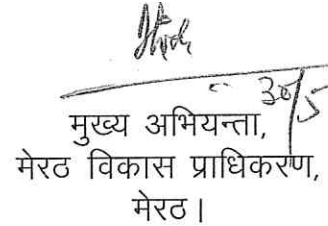 30/5
मुख्य अभियन्ता,
मेरठ विकास प्राधिकरण,
मेरठ।